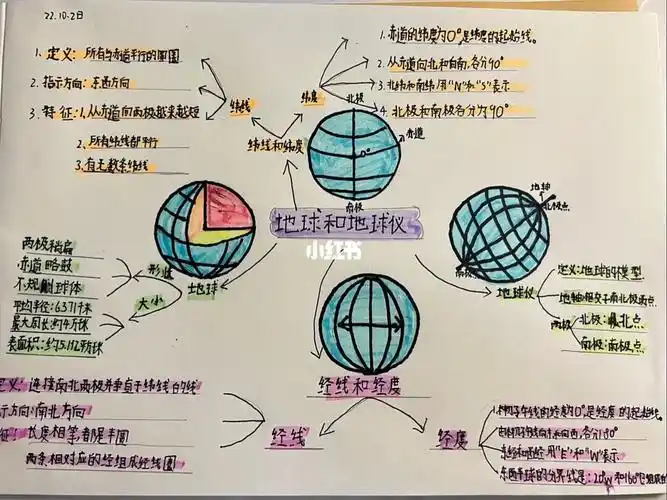 22.10.2日
1. 定义：所有与赤道平行的圆圈
2. 指示方向：东西方向
3. 特征：1.从赤道向两极越来越短
2.所有纬线都平行
3.有无数条纬线
纬线
纬度
纬线和纬度
1.赤道的纬度为0°,是纬度的起始线。
2.从赤道向北和向南,各分90°
3.北纬和南纬用"N"和"S"表示
4.北极和南极各分为90°
北极
赤道
0°
南极
地球和地球仪
小红书
地球
形状
两极稍扁
赤道略鼓
不规则球体
大小
平均半径：6371千米
最大周长：约4万
表面积：约5.1亿
地轴
北极点
南极
地球仪
定义：地球的模型
地轴相交于南北极两点
两极
北极：最北点
南极：南极点
经线和经度
经线
定义：连接南北两极并垂直于纬线的线
示方向：南北方向
征：长度相等都是半圆
两条相对应的经组成经线圈
经度
1.本初子午线的经度为0°,是经度的起始线。
东经和西经用"E"和"W"表示
东西半球的分界线是：20°W和160°E